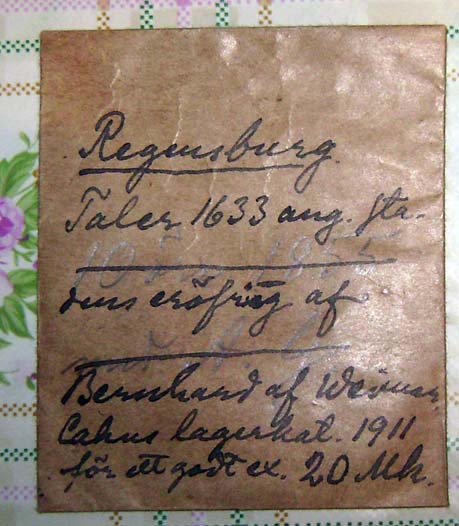 Regensburg.
Taler 1633 ang. sta-
dens eröfring af
Bernhard af Weimar.
Cahns lagerkat. 1911
för ett godt ex. 20 Mk.